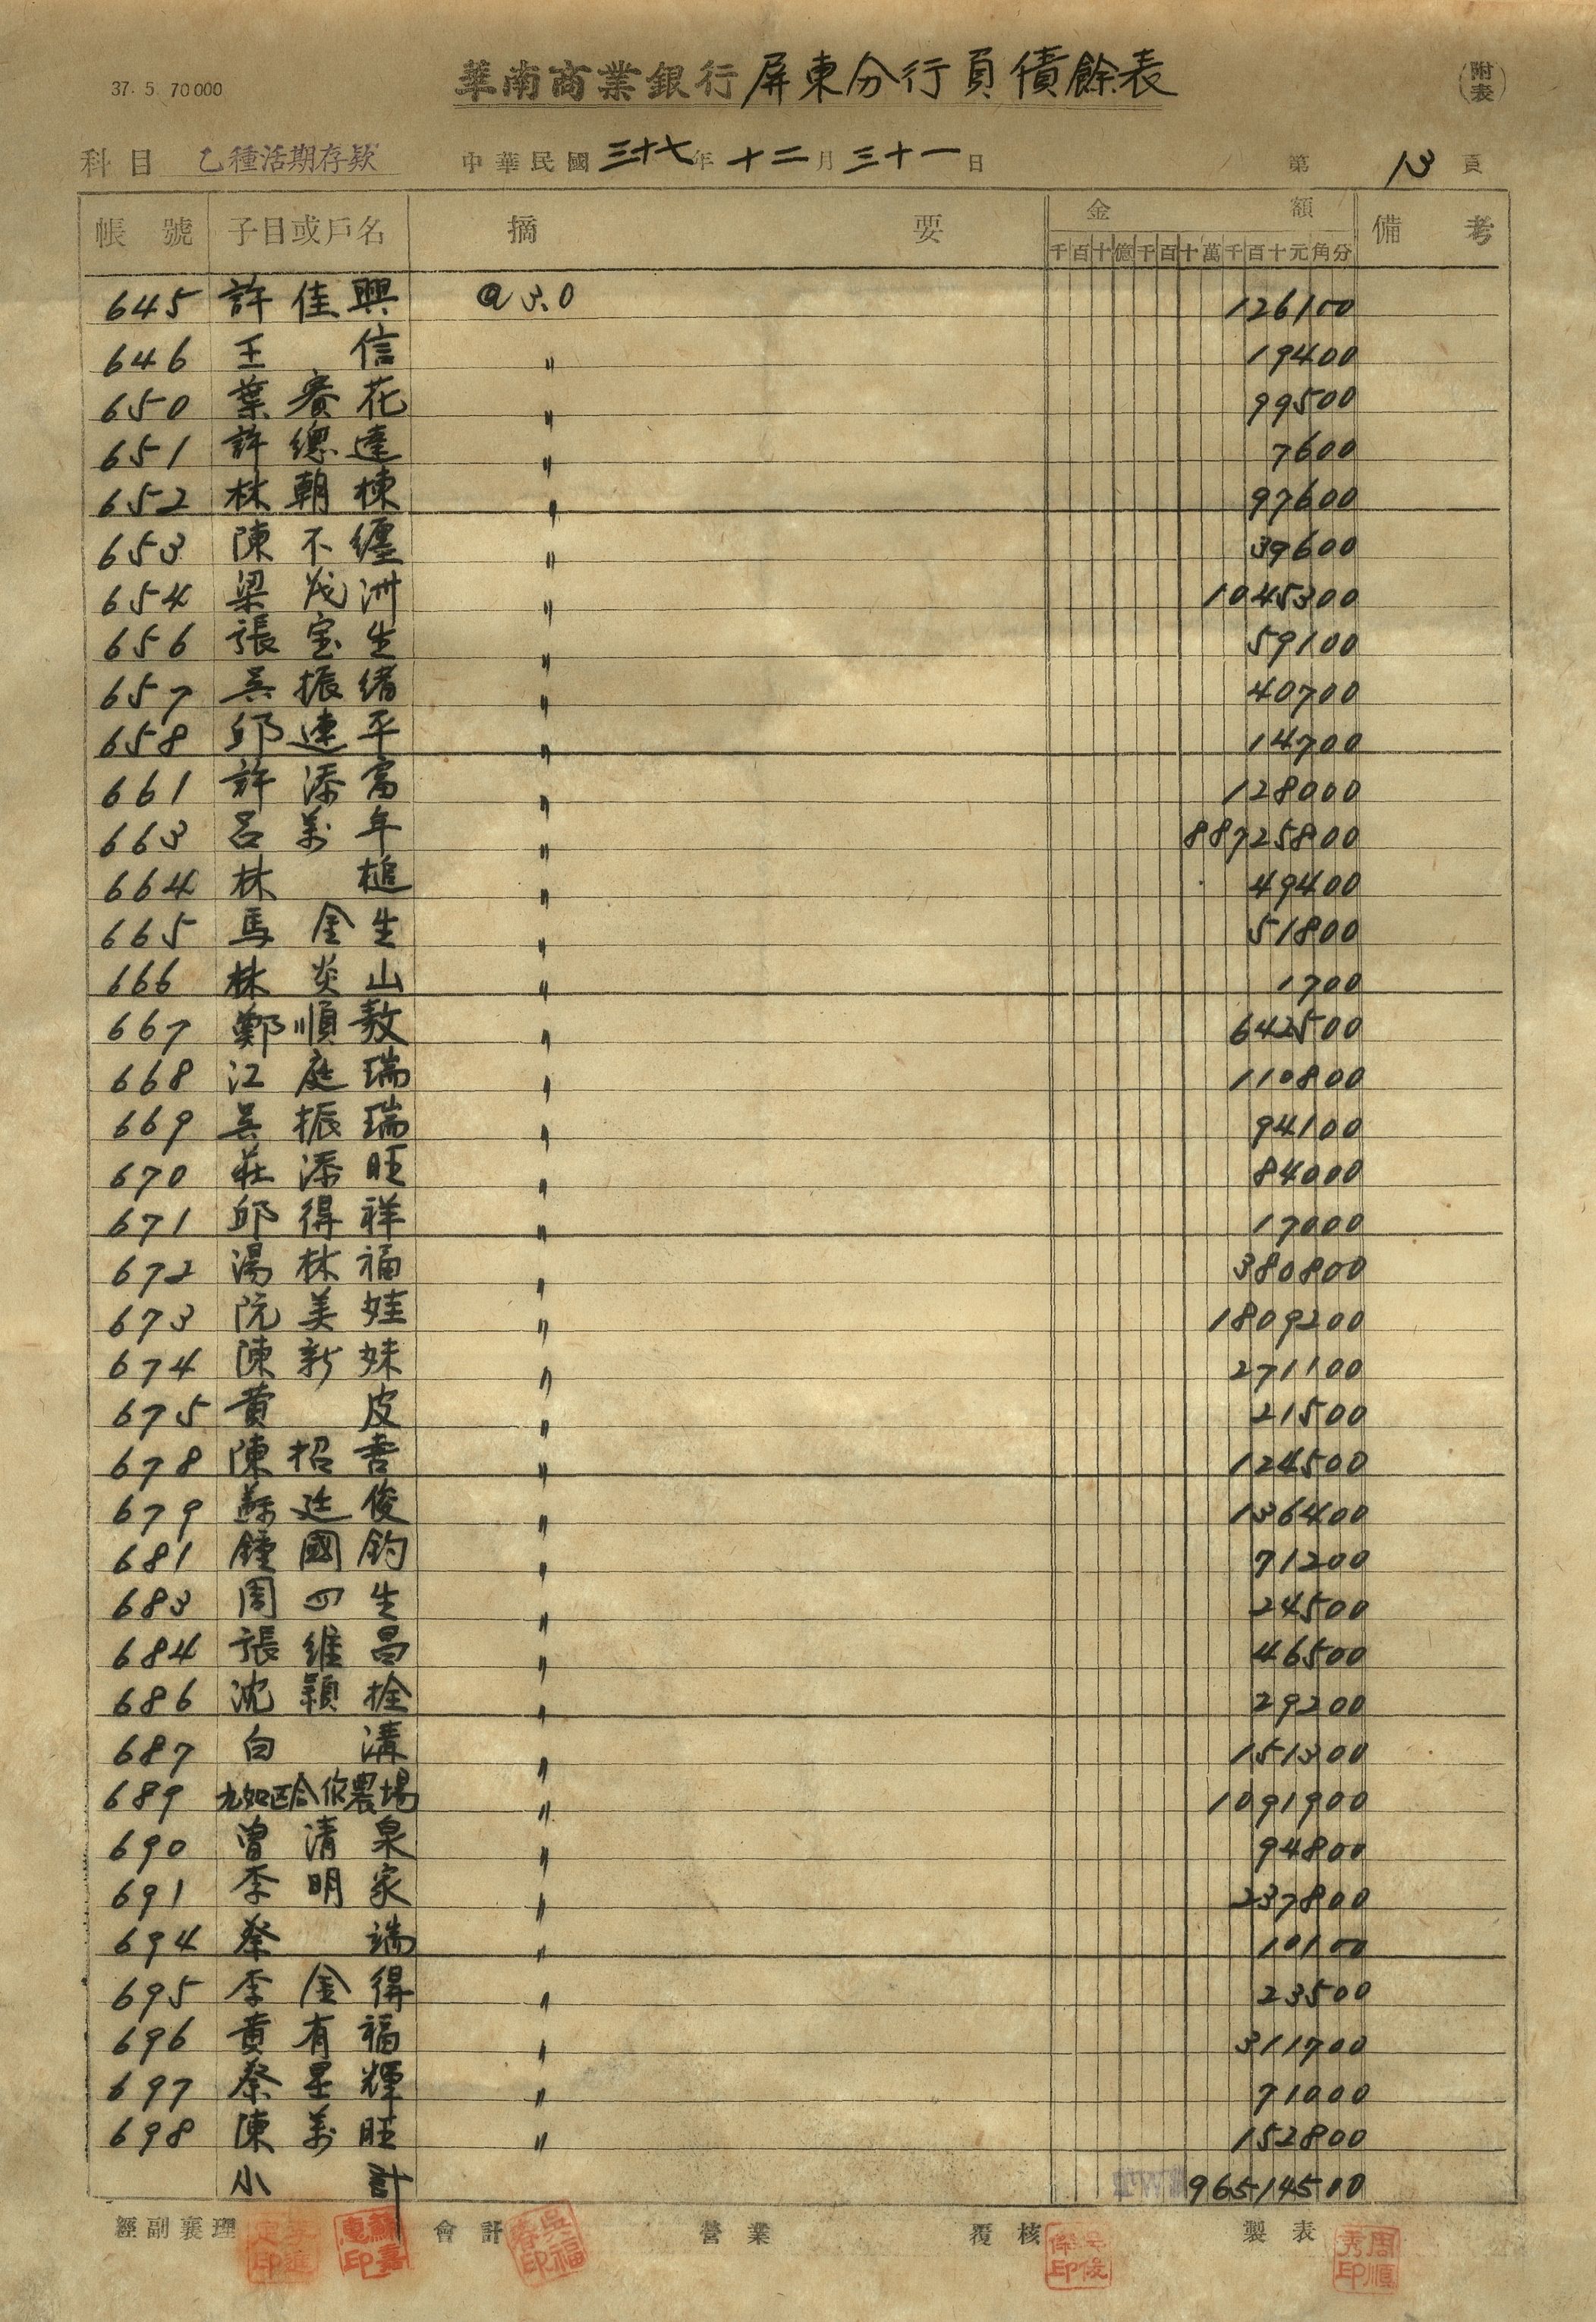 37. 5 70000
華南商業銀行屏東分行負債餘表
(附表)
科目 乙種活期存款 中華民國三十七年十二月三十一日 第13頁
帳號 子目或戶名 摘要 金額 備考
千百十億千百十萬千百十元角分
645 許佳興 @3.0 126100
646 王信 〃 19400
650 葉賽花 〃 99500
651 許總達 〃 7600
652 林朝棟 〃 97600
653 陳不纏 〃 39600
654 梁茂洲 〃 1045300
656 張宝生 〃 59100
657 吳振緒 〃 40700
658 邱連平 〃 14700
661 許添富 〃 128000
663 呂萬年 〃 88725800
664 林槌 〃 49400
665 馬金生 〃 51800
666 林炎山 〃 1700
667 鄭順敖 〃 642500
668 江庭瑞 〃 110800
669 吳振瑞 〃 94100
670 莊添旺 〃 84000
671 邱得祥 〃 17000
672 湯林福 〃 380800
673 阮美娃 〃 1809200
674 陳新妹 〃 271100
675 黄皮 〃 21500
678 陳招 〃 124500
679 蘇廷俊 〃 136400
681 鍾國鈞 〃 71200
683 周四生 〃 24500
684 張維昌 〃 46500
686 沈穎拴 〃 29200
687 白溝 〃 151300
689 九如区合作農場 〃 1091900
690 曾清泉 〃 94800
691 李明家 〃 237800
694 蔡端 〃 10100
695 李金得 〃 23500
696 黄有福 〃 311700
697 蔡星輝 〃 71000
698 陳萬旺 〃 152800
小計 96514500
經副襄理 會計 吳福春印 營業 覆核 製表 周順秀印